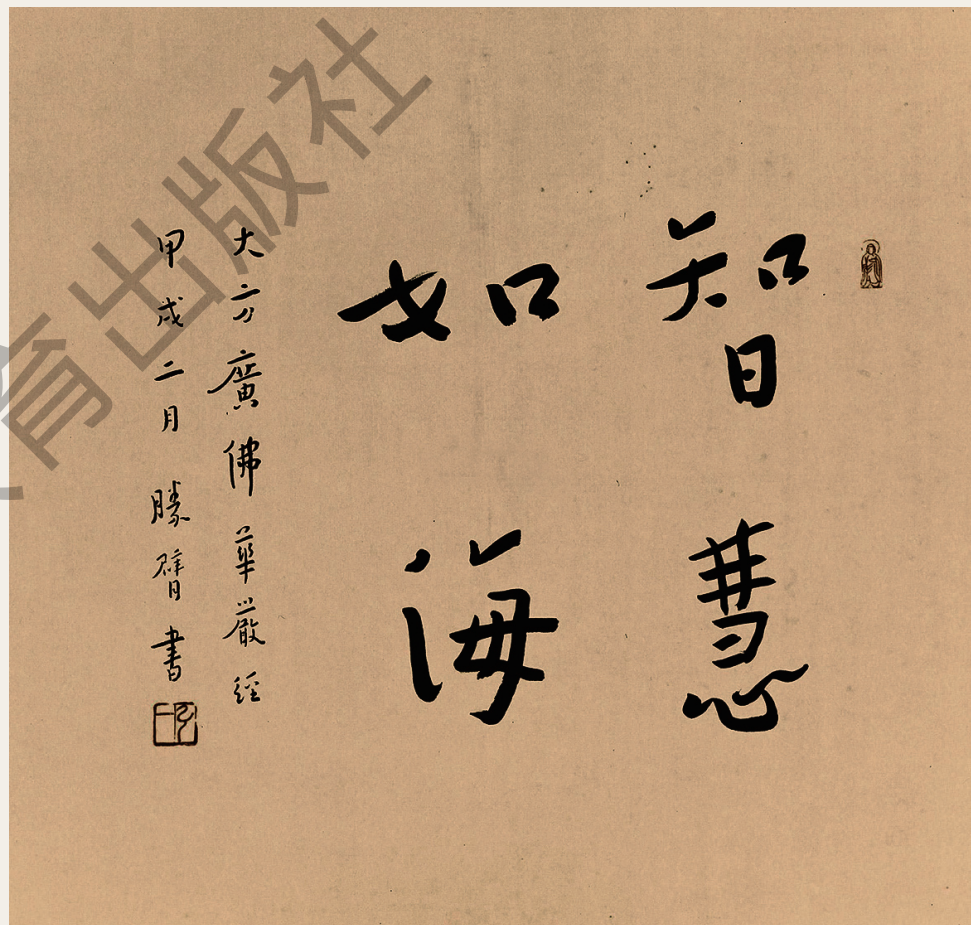 智慧
如海
大方廣佛華嚴經
甲戌二月 勝臂書
育出版社